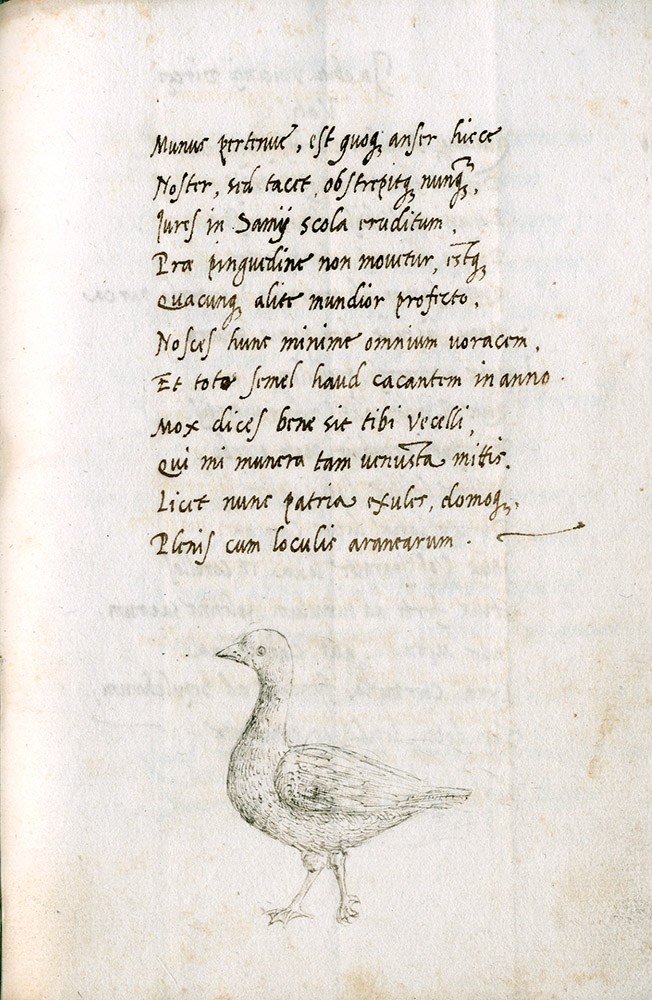 Munus pertenue, est quoq; anser hicce
Noster, sed tacet, obstrepitq; nunq̃,
Jures in Samij scola eruditum.
Præ pinguedine non mouetur, estq;
Quacunq; alite mundior profecto.
Nosces hunc minime omnium uoracem,
Et toto semel haud cacantem in anno.
Mox dices bene sit tibi Vecelli,
Qui mi munera tam uenusta mittis.
Licet nunc patria exules, domoq;,
Plenis cum loculis aranearum.